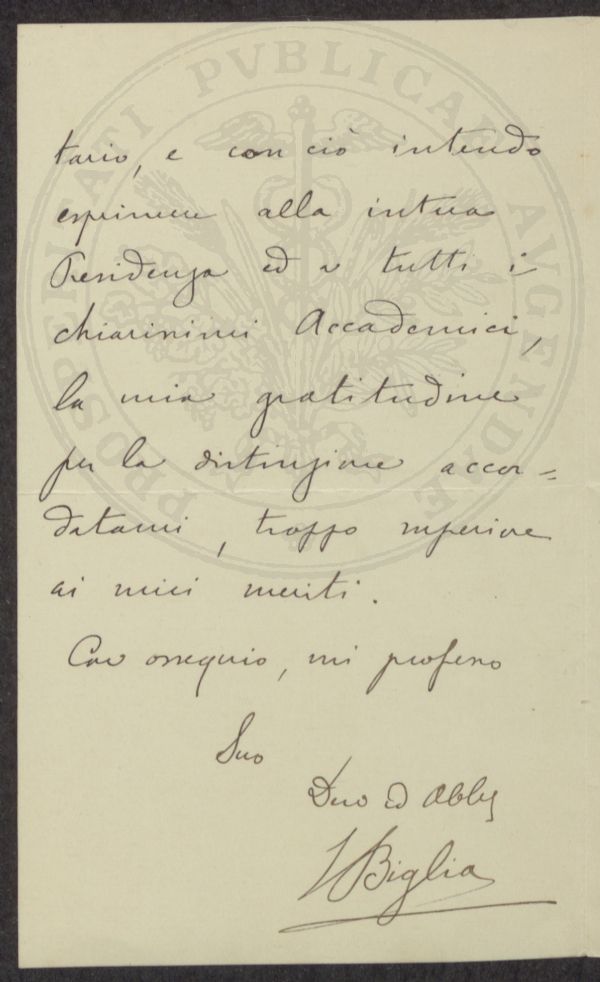 PROSPERITATI PVBLICAE AVGENDAE
tario, e con ciò intendo
esprimere alla intera
Presidenza ed a tutti i
chiarissimi Accademici,
la mia gratitudine
per la distinzione accor=
datami, troppo superiore
ai miei meriti.
Con ossequio, mi professo
Suo
Devo ed Obblo
Biglia